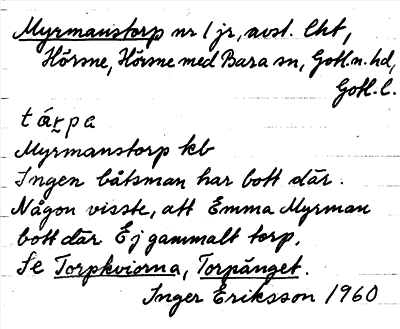 Myrmanstorp nr 1 jr, avst. lht,
Hörsne, Hörsne med Bara sn, Gotl. n. hd,
Gotl. l.
tárpa
Myrmanstorp kb
Ingen båtsman har bott där.
Någon visste, att Emma Myrman
bott där Ej gammalt torp.
Se Torpkviorna, Torpänget.
Inger Eriksson 1960